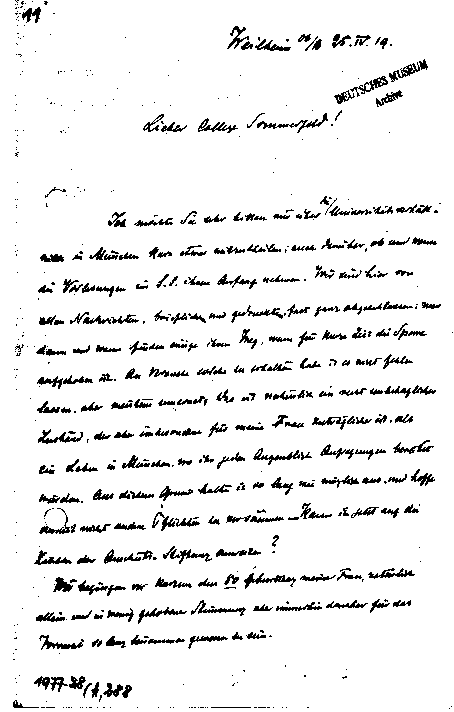 11
Weilheim o/B 25.IV.19.
DEUTSCHES MUSEUM
Archiv
Lieber College Sommerfeld!
Ich möchte Sie sehr bitten mir über die Universitätsverhält-
nisse in München kurz etwas mitzutheilen; auch darüber, ob und wann
die Vorlesungen im S.S. ihren Anfang nehmen. Wir sind hier von
allen Nachrichten, brieflichen und gedruckten, fast ganz abgeschlossen; nur
dann und wann finden einige ihren Weg, wenn für kurze Zeit die Sperre
aufgehoben ist. An Versuche solche zu erhalten habe ich es nicht fehlen
lassen, aber meistens umsonst. Das ist natürlich ein recht unbehaglicher
Zustand, der aber insbesondere für meine Frau zuträglicher ist, als
ein Leben in München, wo ihr jeden Augenblick Aufregungen
würden. Aus diesem Grund halte ich so lang wie möglich aus, und hoffe
damit nicht andere Pflichten zu versäumen. Kann ich jetzt auf die
der Stiftung anweisen?
Wir begingen vor Kurzem den Geburtstag meiner Frau, natürlich
allein und in wenig gehobener Stimmung aber immerhin dankbar für das
so lang zusammen gewesen zu sein.
1977-28/A,288